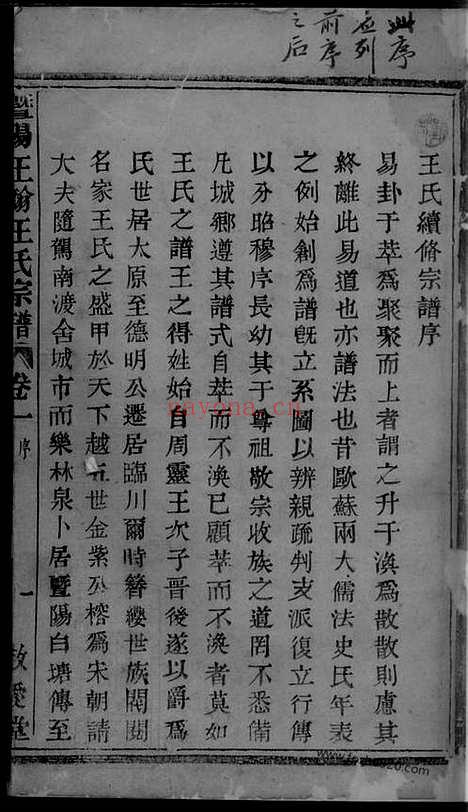 此序
应列
前序
之后
王氏續修宗譜序
易卦于萃爲聚聚而上者謂之升于渙爲散散則慮其
終離此易道也亦譜法也昔歐蘇兩大儒法史氏年表
之例始創爲譜旣立系圖以辨親疏判支派復立行傳
以分昭穆序長幼其于尊祖敬宗收族之道罔不悉備
凡城鄉遵其譜式自萃而不渙已顧萃而不渙者莫如
王氏之譜王之得姓始自周靈王次子晉後遂以爵爲
氏世居太原至德明公遷居臨川爾時簪纓世族閥閱
名家王氏之盛甲於天下越五世金紫公榕爲宋朝請
大夫隨駕南渡舍城市而樂林泉卜居曁陽白塘傳至
曁陽王翰王氏宗譜 卷一 序 一 敦愛堂
nayona.cn